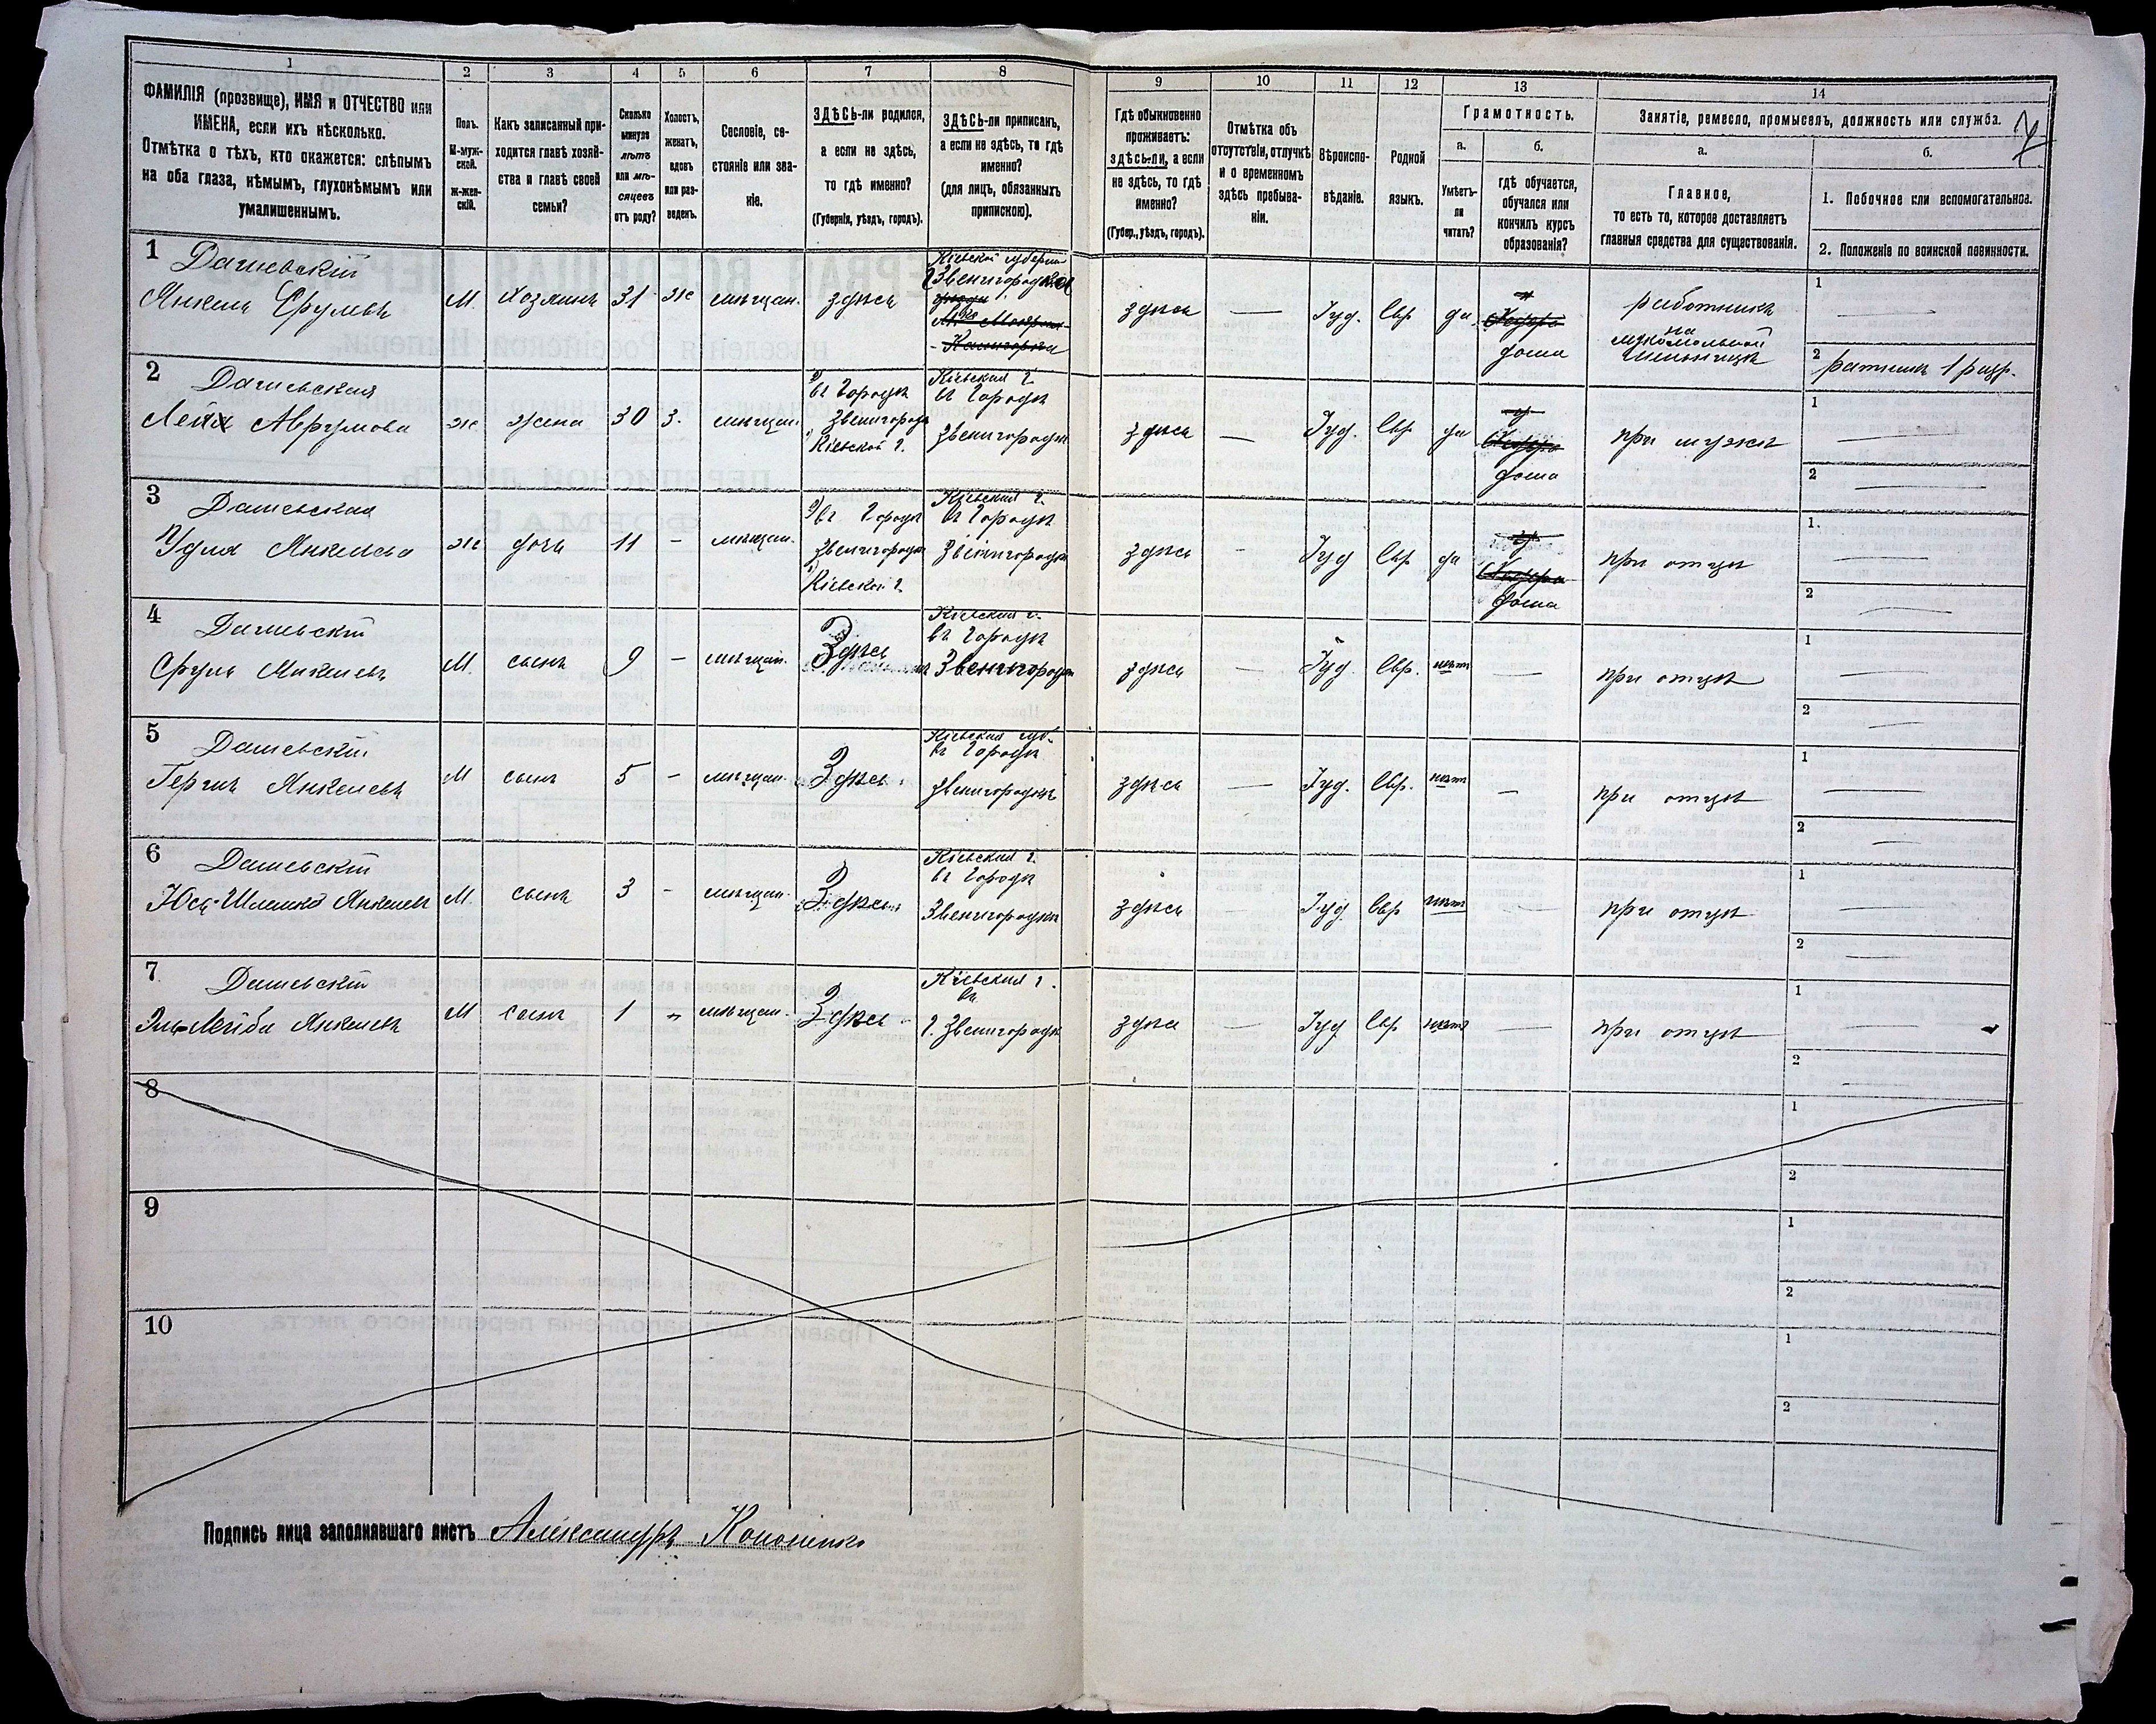 1 2 3 4 5 6 7 8 9 10 11 12 13 14
ФАМИЛІЯ (прозвище), ИМЯ и ОТЧЕСТВО или
ИМЕНА, если ихъ нѣсколько.
Отмѣтка о тѣхъ, кто окажется: слѣпымъ
на оба глаза, нѣмымъ, глухонѣмымъ или
умалишеннымъ.
Полъ.
М-муж-
ской.
Ж-жен-
скій.
Какъ записанный при-
ходится главѣ хозяй-
ства и главѣ своей
семьи?
Сколько
минуло
лѣтъ
или мѣ-
сяцевъ
отъ роду?
Холостъ,
женатъ,
вдовъ
или раз-
веденъ.
Сословіе, со-
стояніе или зва-
ніе.
ЗДѢСЬ-ли родился,
а если не здѣсь,
то гдѣ именно?
(Губернія, уѣздъ, городъ).
ЗДѢСЬ-ли приписанъ,
а если не здѣсь, то гдѣ
именно?
(для лицъ, обязанныхъ
припискою).
Гдѣ обыкновенно
проживаетъ:
здѣсь-ли, а если
не здѣсь, то гдѣ
именно?
(Губер., уѣздъ, городъ).
Отмѣтка объ
отсутствіи, отлучкѣ
и о временномъ
здѣсь пребыва-
ніи.
Вѣроиспо-
вѣданіе.
Родной
языкъ.
Грамотность.
а.
Умѣетъ-
ли
читать?
б.
гдѣ обучается,
обучался или
кончилъ курсъ
образованія?
Занятіе, ремесло, промыселъ, должность или служба.
а.
Главное,
то есть то, которое доставляетъ
главныя средства для существованія.
б.
1. Побочное или вспомогательное.
2. Положеніе по воинской повинности.
1 Дашевскій
Янкель Сруловъ
М. Хозяинъ 31 же мѣщан. здѣсь
Кіевской губерніи
Звенигородка
здѣсь — Іуд. Евр да
дома
работникъ
на
мукомольной
мельницѣ
1
2 ратникъ 1 разр.
2 Дашевская
Лейя Аврумова
же жена 30 з. мѣщан.
въ городѣ
Звенигородкѣ
Кіевской г.
Кіевская г.
въ городѣ
Звенигородкѣ
здѣсь — Іуд. Евр да
дома
при мужѣ
1
2
3 Дашевская
Удля Янкелева
же дочь 11 - мѣщан.
въ городѣ
Звенигородкѣ
Кіевской г.
Кіевская г.
въ городѣ
Звенигородкѣ
здѣсь - Іуд Евр да
дома
при отцѣ
1.
2
4 Дашевскій
Сруль Янкелевъ
М. сынъ 9 - мѣщан. Здѣсь
Кіевская г.
въ городѣ
Звенигородкѣ
здѣсь — Іуд Евр. нѣтъ — при отцѣ
1
2
5 Дашевскій
Гершъ Янкелевъ
М сынъ 5 - мѣщан. Здѣсь
Кіевская губ.
въ городѣ
Звенигородкѣ
здѣсь — Іуд. Евр. нѣтъ — при отцѣ
1
2
6 Дашевскій
Юсь-Шлемко Янкелевъ
М. сынъ 3 - мѣщан. Здѣсь
Кіевская г.
въ городѣ
Звенигородкѣ
здѣсь Іуд Евр нѣтъ — при отцѣ
1
2
7 Дашевскій
Эль-Лейба Янкелевъ
М сынъ 1 - мѣщан. Здѣсь
Кіевская г.
въ
г. Звенигородкѣ
здѣсь — Іуд Евр нѣтъ — при отцѣ
1
2
8
1
2
9
1
2
10
1
2
Подпись лица заполнявшаго листъ Александръ Кононенко